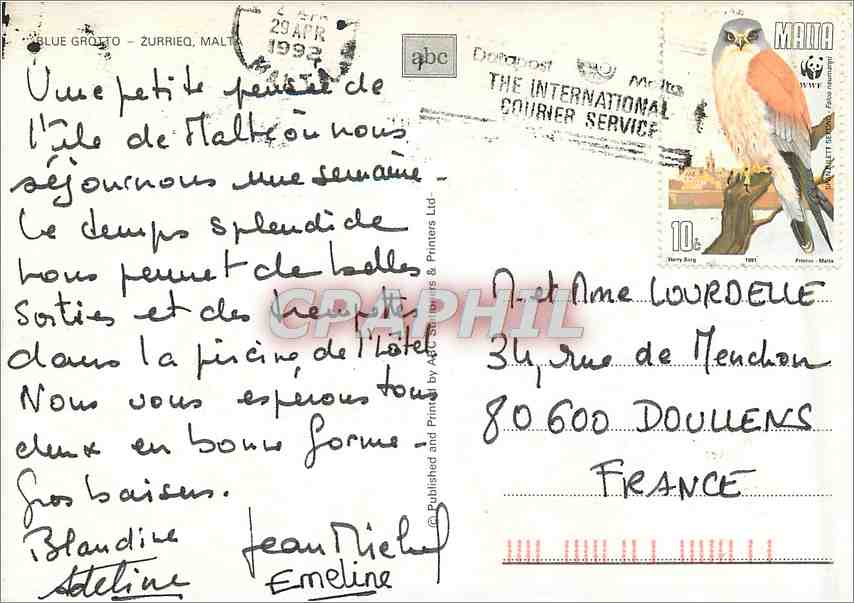 BLUE GROTTO – ŻURRIEQ, MALTA
29 APR
1992
MALTA
abc
Datapost
Malta
THE INTERNATIONAL
COURIER SERVICE
MALTA
WWF
Falco naumanni
10c
Harry Borg
1991
Printex - Malta
Une petite pensée de
l'île de Malte où nous
séjournons une semaine -
Le temps splendide
nous permet de belles
sorties et des trempettes
dans la piscine de l'hôtel
Nous vous espérons tous
deux en bonne forme -
Gros baisers.
Blandine
Jean Michel
Adeline
Emeline
© Published and Printed by ABC Stationers & Printers Ltd-
CPAPHIL
M. et Mme LOURDELLE
34, rue de Menchon
80 600 DOULLENS
FRANCE